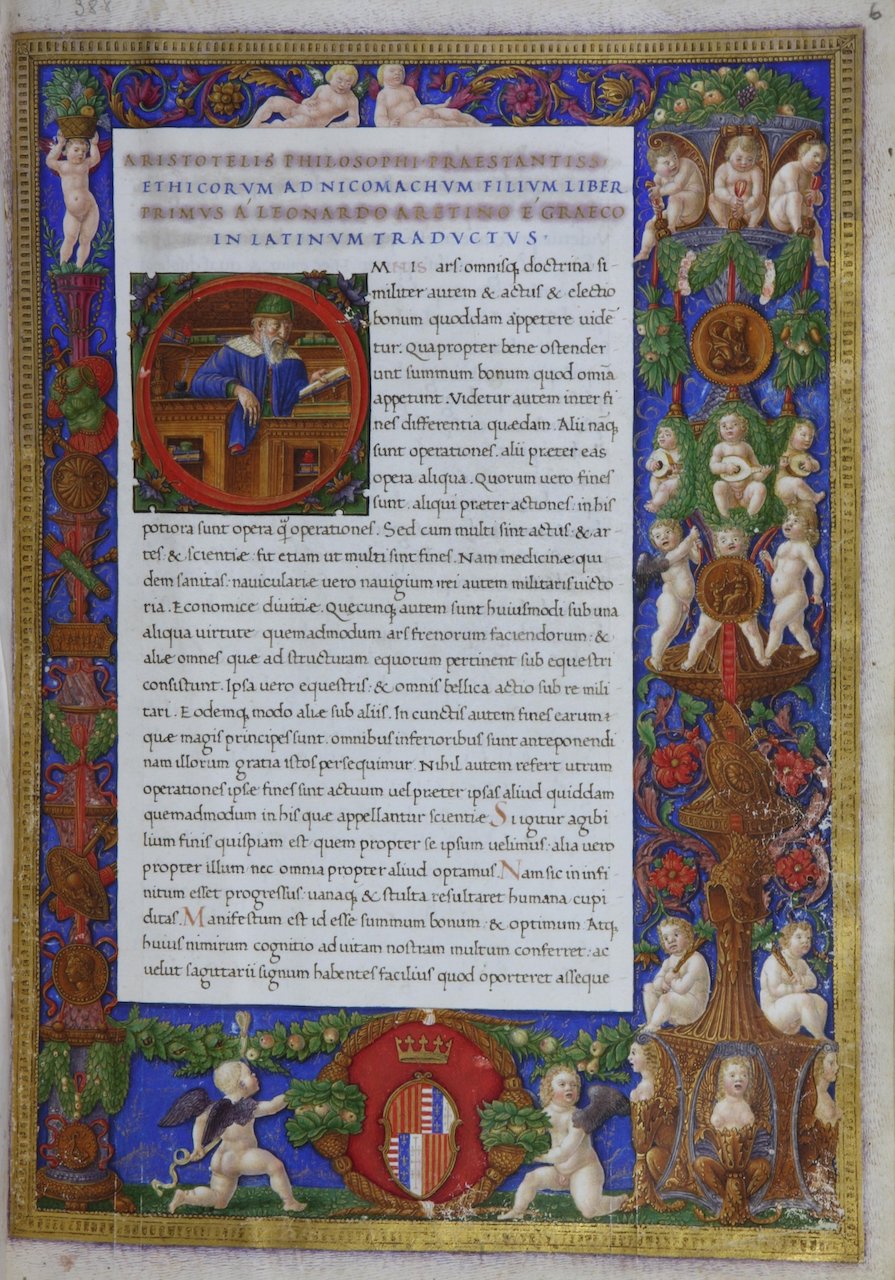 388
6
ARISTOTELIS PHILOSOPHI PRAESTANTISS
ETHICORVM AD NICOMACHVM FILIVM LIBER
PRIMVS A LEONARDO ARETINO E GRAECO
IN LATINVM TRADVCTVS
MNIS ars: omnisq; doctrina si-
militer autem & actus & electio
bonum quoddam appetere uide-
tur. Quapropter bene ostender
unt summum bonum quod omia
appetunt. Videtur autem inter fi
nes differentia quædam. Alii naq;
sunt operationes. alii præter eas
opera aliqua. Quorum uero fines
sunt. aliqui præter actiones: in his
potiora sunt opera q̃ operationes. Sed cum multi sint actus: & ar-
tes: & scientiæ: fit etiam ut multi sint fines. Nam medicinæ qui
dem sanitas: nauiculariæ uero nauigium: rei autem militaris uicto-
ria. Economice diuitiæ. Quecunq; autem sunt huiusmodi sub una
aliqua uirtute: quemadmodum ars frenorum faciendorum: &
aliæ omnes quæ ad structuram equorum pertinent sub equestri
consistunt. Ipsa uero equestris: & omnis bellica actio sub re mili-
tari. Eodemq; modo aliæ sub aliis. In cunctis autem fines earum:
quæ magis principes sunt. omnibus inferioribus sunt anteponendi
nam illorum gratia istos persequimur. Nihil autem refert utrum
operationes ipsæ fines sint actuum uel præter ipsas aliud quiddam
quemadmodum in his quæ appellantur scientiæ. Si igitur agibi
lium finis quispiam est quem propter se ipsum uelimus: alia uero
propter illum: nec omnia propter aliud optamus. Nam sic in infi-
nitum esset progressus: uanaq; & stulta resultaret humana cupi
ditas. Manifestum est id esse summum bonum: & optimum. Atq;
huius nimirum cognitio ad uitam nostram multum conferret: ac
uelut sagittarii signum habentes facilius quod oporteret asseque